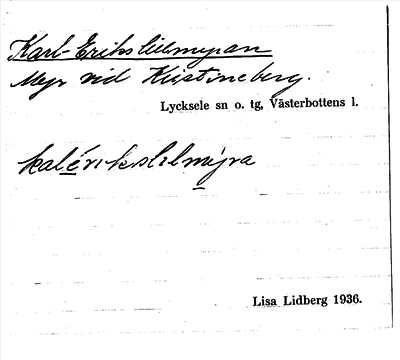 Karl-Erikslillmyran
Myr vid Kristineberg.
Lycksele sn o. tg, Västerbottens l.
kalérikslılmy̆ra
Lisa Lidberg 1936.